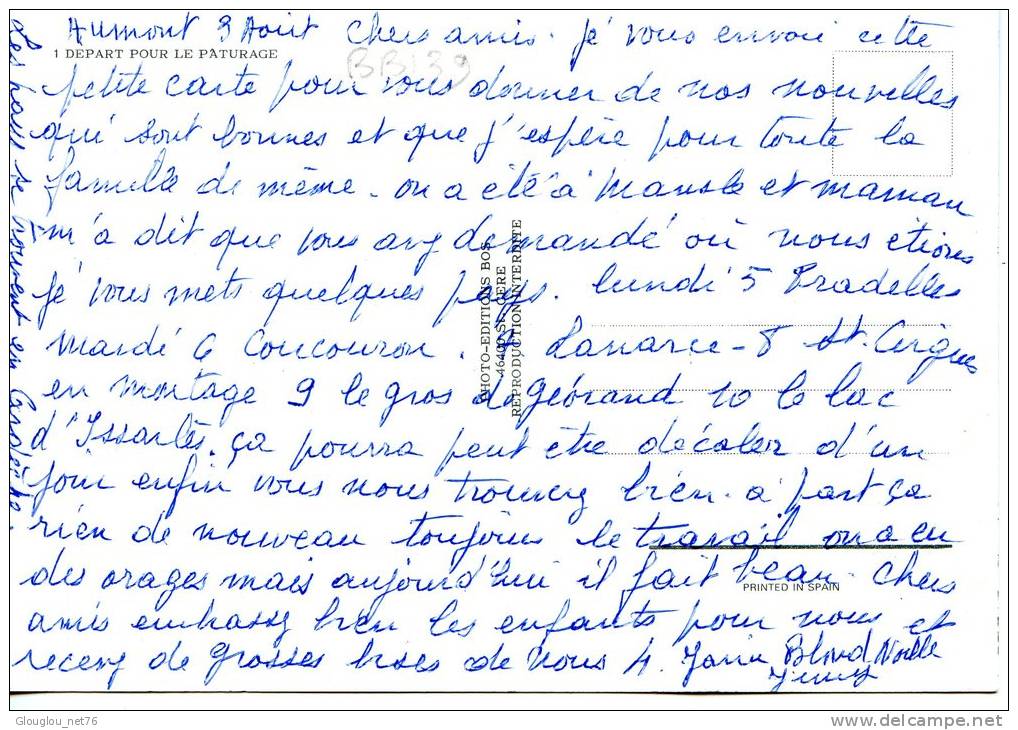 Aumont 3 Août Chers amis. Jé vous envoie cette
1 DEPART POUR LE PATURAGE
BB139
petite carte pour vous donner de nos nouvelles
qui sont bonnes et que j'espère pour toute la
famille de même. on a été à Mansle et maman
m'a dit que vous avez demandé où nous étions
jé vous mets quelques pays. lundi 5 Pradelles
mardi 6 Coucouron. 7 Lanarce - 8 St. Cirgues
en montagne 9 le gros de Géorand 10 le lac
d'Issarlès. ça pourra peut être décaler d'un
jour enfin vous nous trouvez bien. à part ça
rien de nouveau toujours le travail on a eu
des orages mais aujourd'hui il fait beau. Chers
amis embrassez bien les enfants pour nous et
recevez de grosses bises de nous 4. Blond Noelle
Les pays se trouvent en Ardèche.
PHOTO-EDITIONS BOS
46400 ST-CERE
REPRODUCTION INTERDITE
PRINTED IN SPAIN
Glouglou_net76